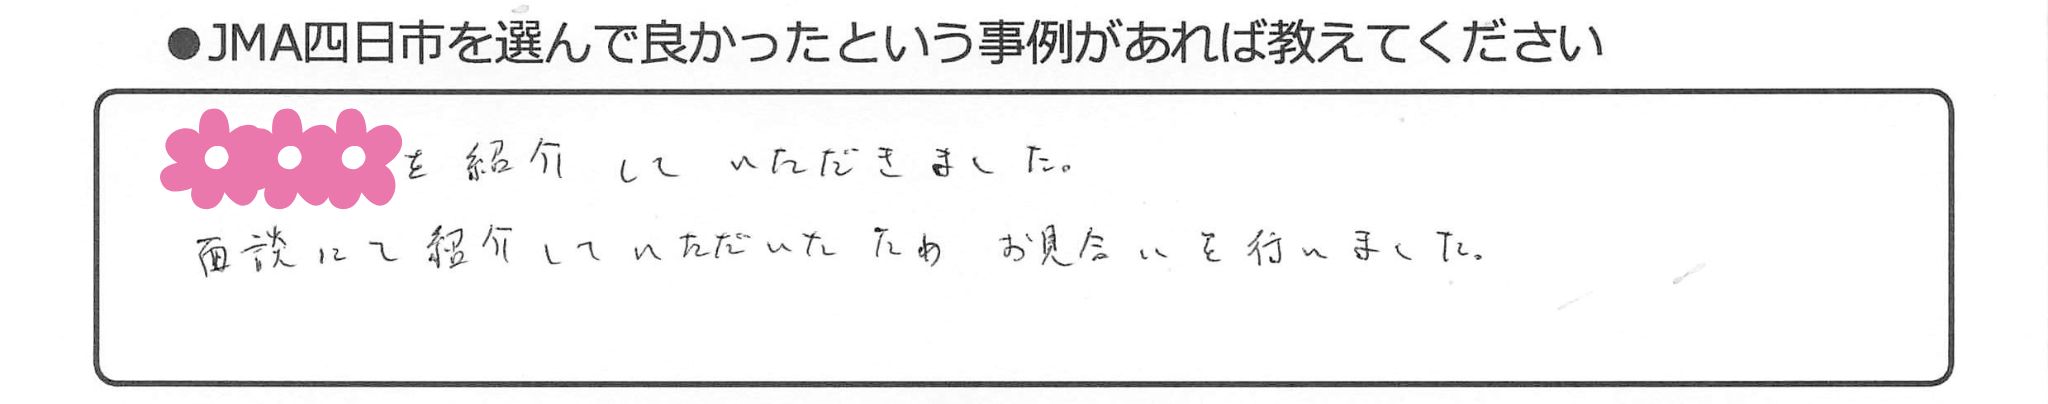 ●JMA四日市を選んで良かったという事例があれば教えてください
を紹介していただきました。
面談にて紹介していただいたためお見合いを行いました。